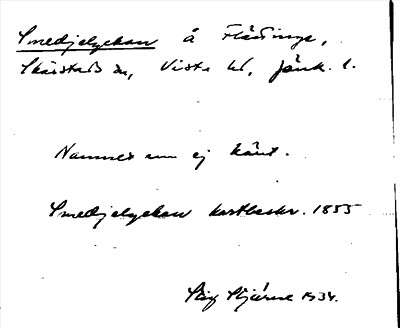 Smedjelyckan å Flättinge,
Skärstads sn, Vista hd, Jönk. l.
Namnet nu ej känt.
Smedjelyckan kartbeskr. 1855
Stig Stjärne 1934.